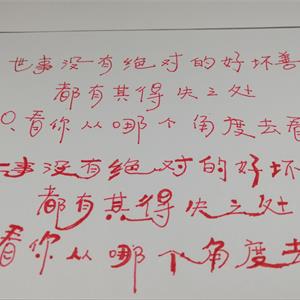 世事没有绝对的好坏善
都有其得失之处
看你从哪个角度去看
世事没有绝对的好坏
都有其得失之处
看你从哪个角度去